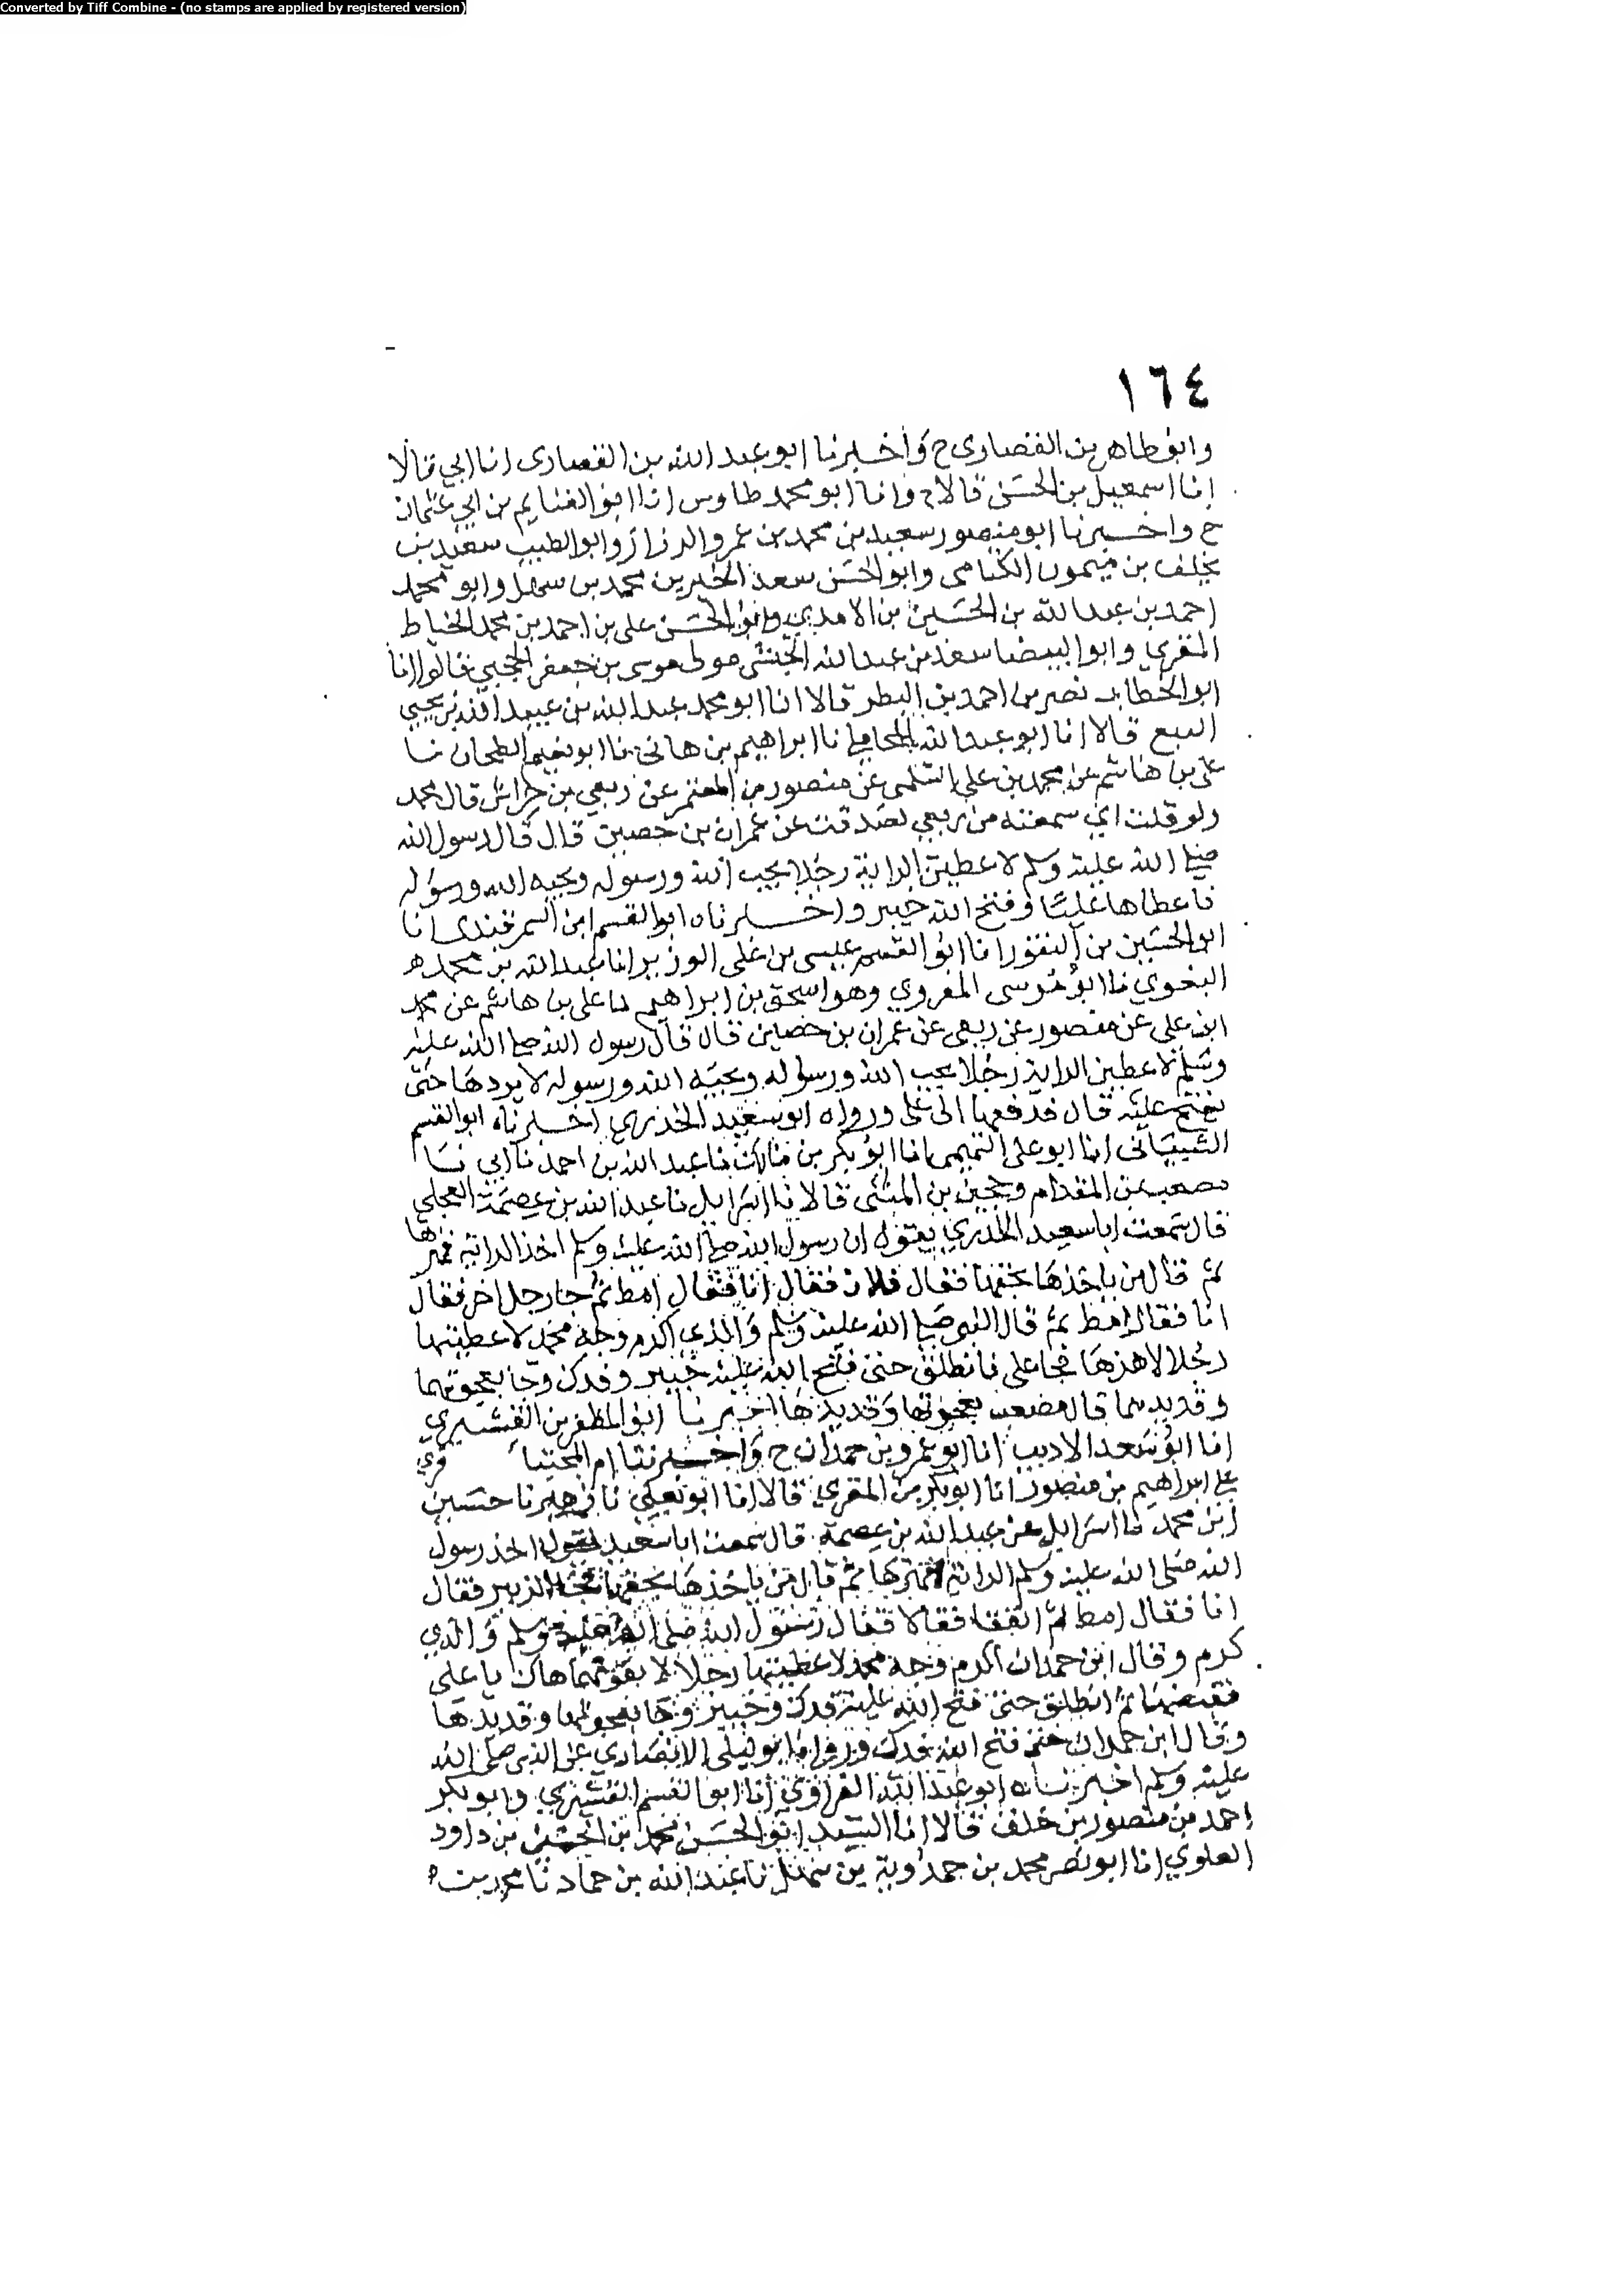 Converted by Tiff Combine - (no stamps are applied by registered version)
١٦٤
وابو طاهر بن القصارى ح واخبرنا ابو عبد الله بن القصارى انا ابي قالا
انا اسمعيل بن الحسن قالا ح وانا ابو محمد طاوس انا ابو الغنايم بن ابي عثمان
ح واخبرنا ابو منصور سعيد بن محمد بن عمر والرزاز وابو الطيب سعيد بن
يخلف بن ميمون الكتامى وابو الحسن سعد الخير بن محمد بن سهل وابو محمد
احمد بن عبد الله بن الحسين بن الامدي وابو الحسن على بن احمد بن محمد الخياط
المقري وابو البيضا سعد بن عبد الله الحبشى مولى موسى بن جعفر الحجبي قالوا انا
ابو الخطاب نصر بن احمد بن البطر قالا انا ابو محمد عبد الله بن عبيد الله بن يحيى
البيع قالا انا ابو عبد الله المحاملي نا ابراهيم بن هانى نا ابو نعيم الطحان نا
على بن هاشم عن محمد بن على السلمى عن منصور بن المعتمر عن ربعي بن حراش قال محمد
ولو قلت اني سمعته من ربعي لصدقت عن عمران بن حصين قال قال رسول الله
صلى الله عليه وسلم لاعطين الراية رجلا يحب الله ورسوله ويحبه الله ورسوله
فاعطاها عليا وفتح الله خيبر واخبرناه ابو القسم ابن السمرقندى انا
ابو الحسين بن النقور انا ابو القسم عيسى بن على الوزير انا عبد الله بن محمد
البغوي نا ابو موسى المقروي وهو اسحق بن ابراهيم نا على بن هاشم عن محمد
ابن على عن منصور عن ربعى عن عمران بن حصين قال قال رسول الله صلى الله عليه
وسلم لاعطين الراية رجلا يحب الله ورسوله ويحبه الله ورسوله لا يردها حتى
يفتح عليه قال فدفعها الى على ورواه ابو سعيد الخدري اخبرناه ابو القسم
الشيبانى انا ابو على التميمى انا ابو بكر بن مالك نا عبد الله بن احمد نا ابي نا
مصعب بن المقدام وحجين بن المثنى قالا نا اسرايل نا عبد الله بن عصمة العجلي
قال سمعت ابا سعيد الخدري يقول ان رسول الله صلى الله عليه وسلم اخذ الراية فهزها
ثم قال من ياخذها بحقها فقال فلان فقال انا فقال امط ثم جا رجل اخر فقال
انا فقال امط ثم قال النبي صلى الله عليه وسلم والذي اكرم وجه محمد لاعطينها
رجلا لا هزها فجا على فانطلق حتى فتح الله عليه خيبر وفدك وجا بعجوتهما
وقديدهما قال مصعب بعجوتها وقديدها اخبرنا ابو المظفر بن القشيري
انا ابو سعد الاديب انا ابو عمرو بن حمدان ح واخبرتنا ام المجتبا قري
على ابراهيم بن منصور انا ابو بكر بن المقري قالا انا ابو يعلى نا زهير نا حسين
ابن محمد نا اسرايل عن عبد الله بن عصمة قال سمعت ابا سعيد يقول اخذ رسول
الله صلى الله عليه وسلم الراية فهزها ثم قال من ياخذها بحقها فجا الزبير فقال
انا فقال امط ثم اتفقا فقالا فقال رسول الله صلى الله عليه وسلم والذي
كرم وقال ابن حمدان اكرم وجه محمد لاعطينها رجلا لا يفر بهما هاك يا على
فقبضها ثم انطلق حتى فتح الله عليه فدك وخيبر وجا بعجوتها وقديدها
وقال ابن حمدان حتى فتح الله فدك ورواه ابو ليلى الانصاري عن النبي صلى الله
عليه وسلم اخبرناه ابو عبد الله الفراوي انا ابو القسم القشيري وابو بكر
احمد بن منصور بن خلف قالا انا السيد ابو الحسن محمد بن الحسين بن داود
العلوي انا ابو نصر محمد بن حمدوية بن سهل نا عبد الله بن حماد نا